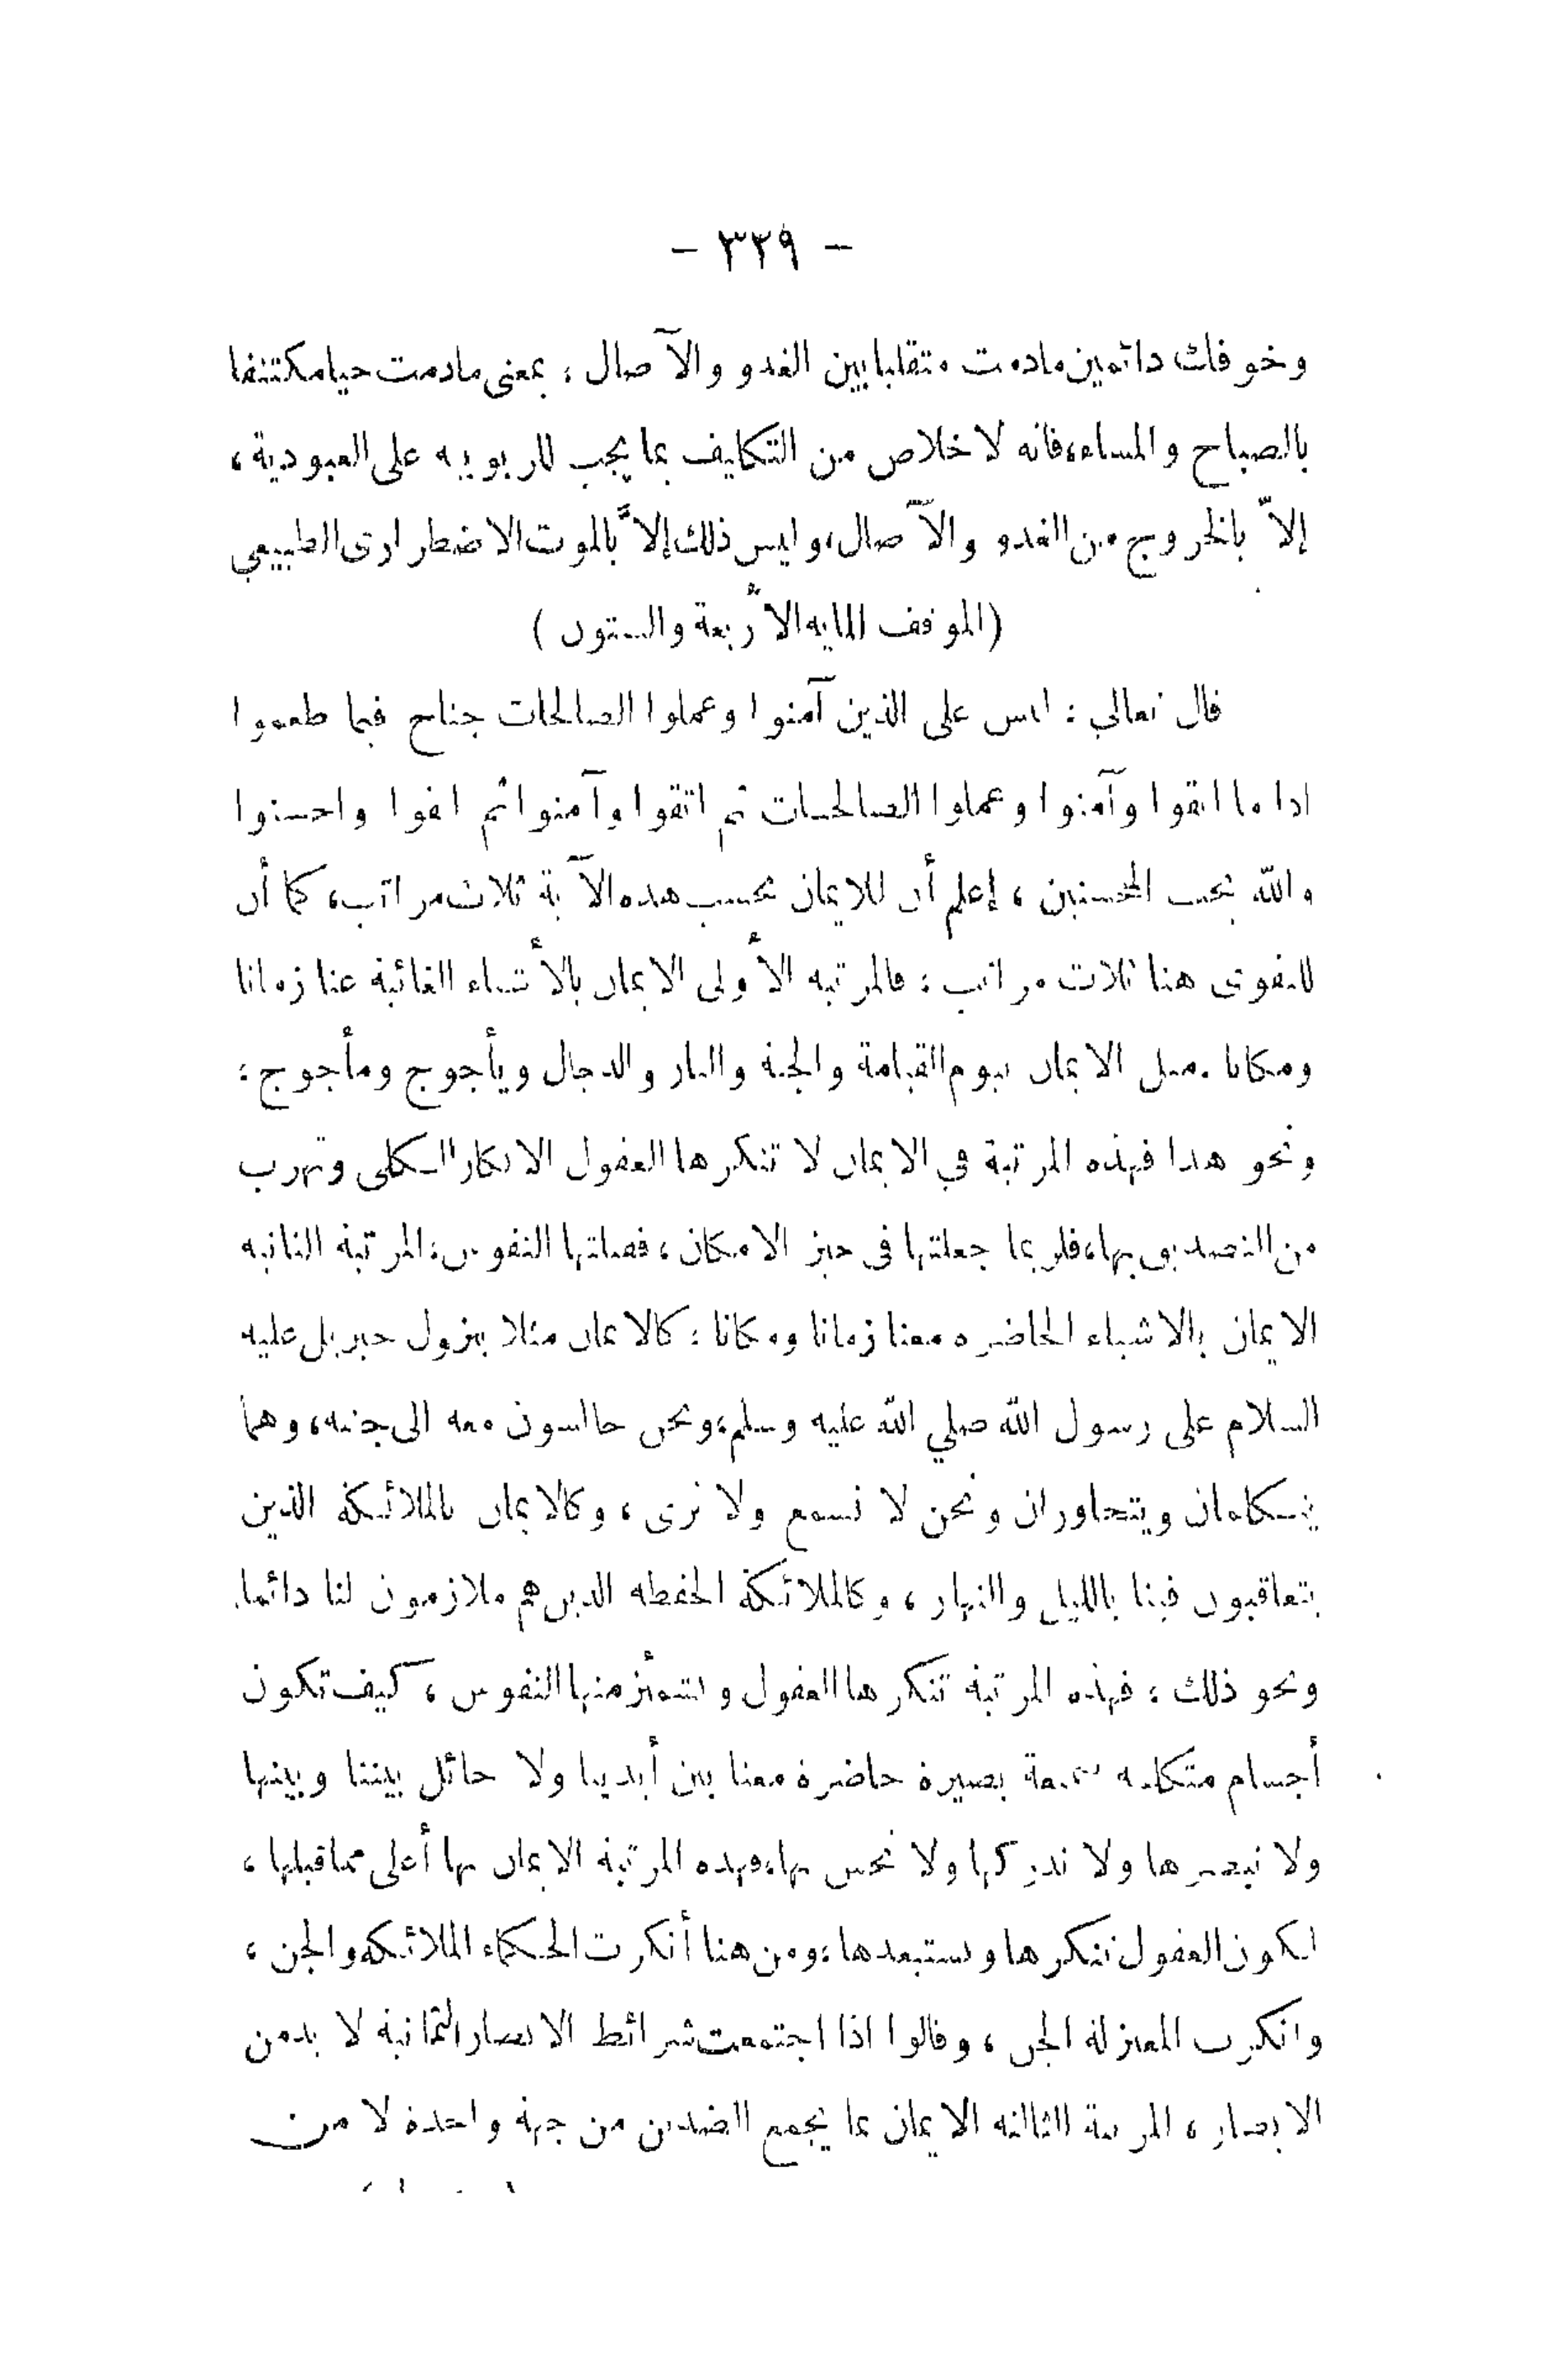 - ٣٢٩ -
وخوفك دائمين مادمت متقلبا بين الغدو والآصال ، بمعنى مادمت حيا مكتنفا
بالصباح والمساء، فانه لا خلاص من التكليف بما يجب للربوبيه على العبودية ،
إلاّ بالخروج من الغدو والآصال، وليس ذلك إلاّ بالموت الاضطرارى الطبيعي
(الموقف المايه الأربعة والستون )
قال تعالى : ليس على الذين آمنوا وعملوا الصالحات جناح فيما طعموا
اذا ما اتقوا وآمنوا وعملوا الصالحات ثم اتقوا وآمنوا ثم اتقوا واحسنوا
والله يحب المحسنين ، إعلم أن للايمان بحسب هذه الآية ثلاث مراتب، كما أن
للتقوى هنا ثلاث مراتب : فالمرتبه الأولى الايمان بالأشياء الغائبة عنا زمانا
ومكانا . مثل الايمان بيوم القيامة والجنة والنار والدجال ويأجوج ومأجوج :
ونحو هذا فهذه المرتبة في الايمان لا تنكرها العقول الانكار الكلى وتهرب
من التصديق بها، فلربما جعلتها فى حيز الامكان ، فقبلتها النفوس، المرتبة الثانيه
الايمان بالاشياء الحاضره معنا زمانا ومكانا : كالايمان مثلا بنزول جبريل عليه
السلام على رسول الله صلي الله عليه وسلم، ونحن جالسون معه الى جنبه، وهما
يتكلمان ويتحاوران ونحن لا نسمع ولا نرى ، وكالايمان بالملائكة الذين
يتعاقبون فينا بالليل والنهار ، وكالملائكة الحفظه الذين هم ملازمون لنا دائما.
ونحو ذلك ، فهذه المرتبة تنكرها العقول وتشمئز منها النفوس ، كيف تكون
أجسام متكلمه سميعة بصيرة حاضرة معنا بين أيدينا ولا حائل بيننا وبينها
ولا نبصرها ولا ندركها ولا نحس بها، فهذه المرتبة الايمان بها أعلى مما قبلها ،
لكون العقول تنكرها وتستبعدها ، ومن هنا أنكرت الحكماء الملائكه والجن ،
وانكرت المعتزلة الجن ، وقالوا اذا اجتمعت شرائط الابصار الثمانية لا بد من
الابصار ، المرتبة الثالثه الايمان بما يجمع الضدين من جهة واحدة لا من